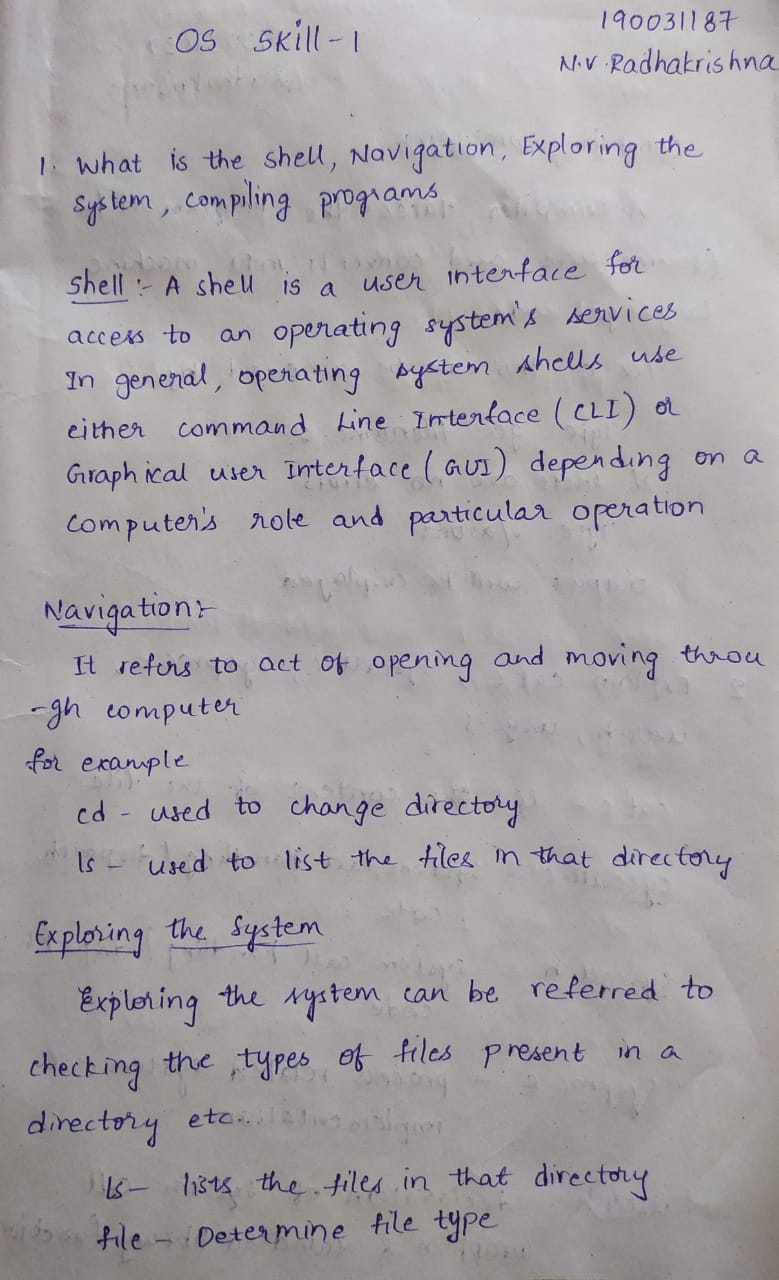 OS Skill-1
190031187
N.V.Radhakrishna
1. What is the shell, Navigation, Exploring the
System, compiling programs
Shell :- A shell is a user interface for
access to an operating system's services
In general, operating system shells use
either command Line Interface (CLI) or
Graphical user Interface (GUI) depending on a
Computer's role and particular operation
Navigation:-
It refers to act of opening and moving throu
-gh computer
for example
cd - used to change directory
ls - used to list the files in that directory
Exploring the System
Exploring the system can be referred to
checking the types of files present in a
directory etc...
ls - lists the files in that directory
file - Determine file type